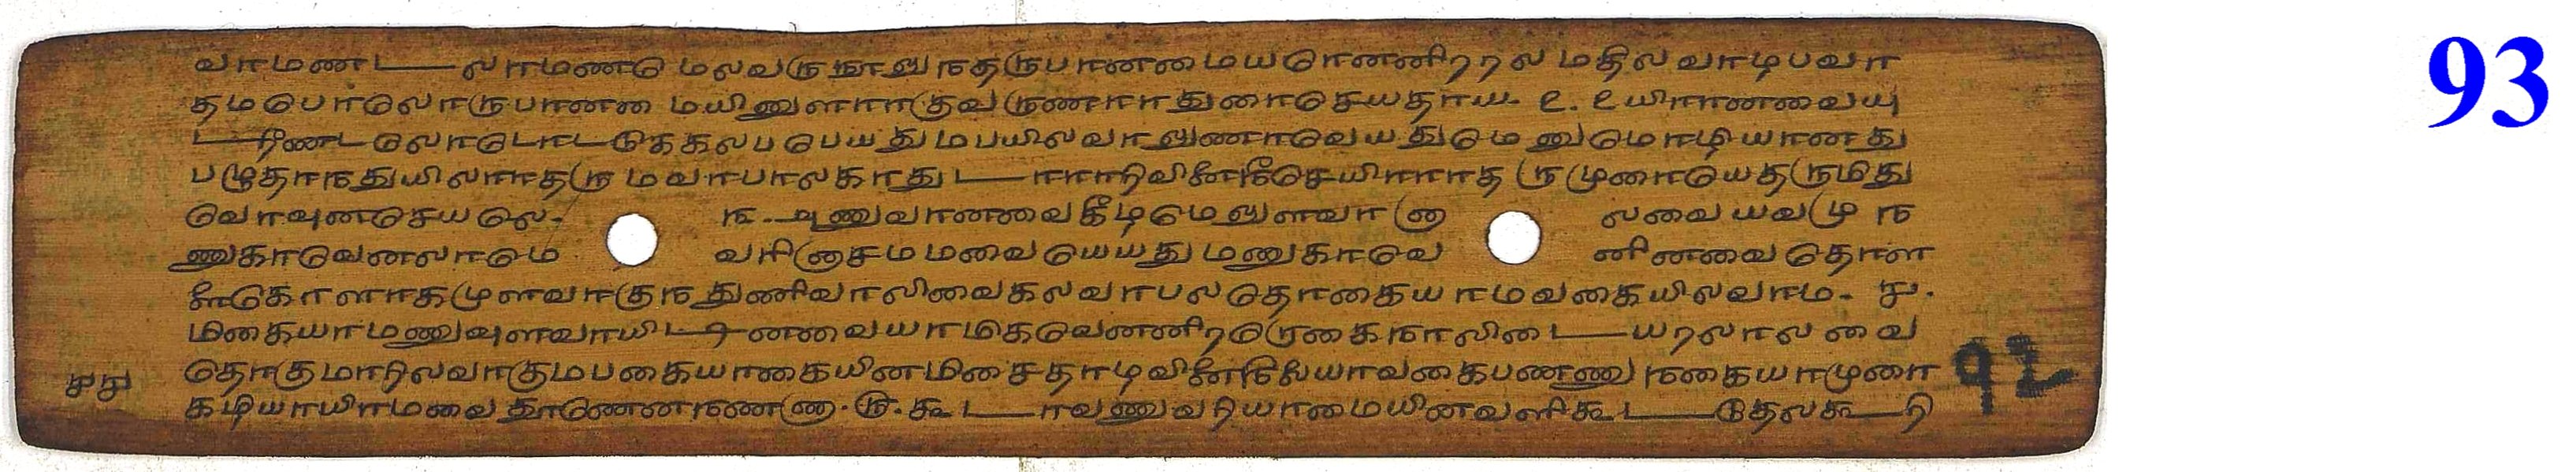 வாமணட லாமணடு மலவருநாலு நதருபானமையொனனிறறல மதில வாழபவா
தமபொலொருபானமையினுளாாகுவருணராதுரைசெயதாய. உ. உயிராணவையு
டறிணடலொடொடடுககலபபெயதுமபயிலவாலுணாவெயதுமெனுமொழியானது
பழுதாநதுயிலாாதரு மவாபாலகாதுடாாாறிவினைநீசெயிாாாத ருமுரையெதருமிது
வொவுனசெயலெ. ௩. அணுவானவைகீழமெலுளவா னு லவையவமு ந
ணுகாவெனலாமெ வாினுசமமவையெயதுமணுகாவெ னினவை தொள
ளைகொளாகமுளவாகுநதுணிவாலிவைகலவாபலதொகையாமவகையிலவாம. ௪.
மிகையாமணுவுளவாயிடறினவையாமிகவெனனிறெருகைநாலிடையறலாலவை
தொகுமாறிலவாகுமபகையாகையினமிசைதாழவினைநிலையாவகைபணணுநகையாமுரை
கழியாயிாமவை தூணெனநணணு. ௫. கூடாவணுவறியாமையினவளிகூடடுதலகூறி
௯௪
92
93